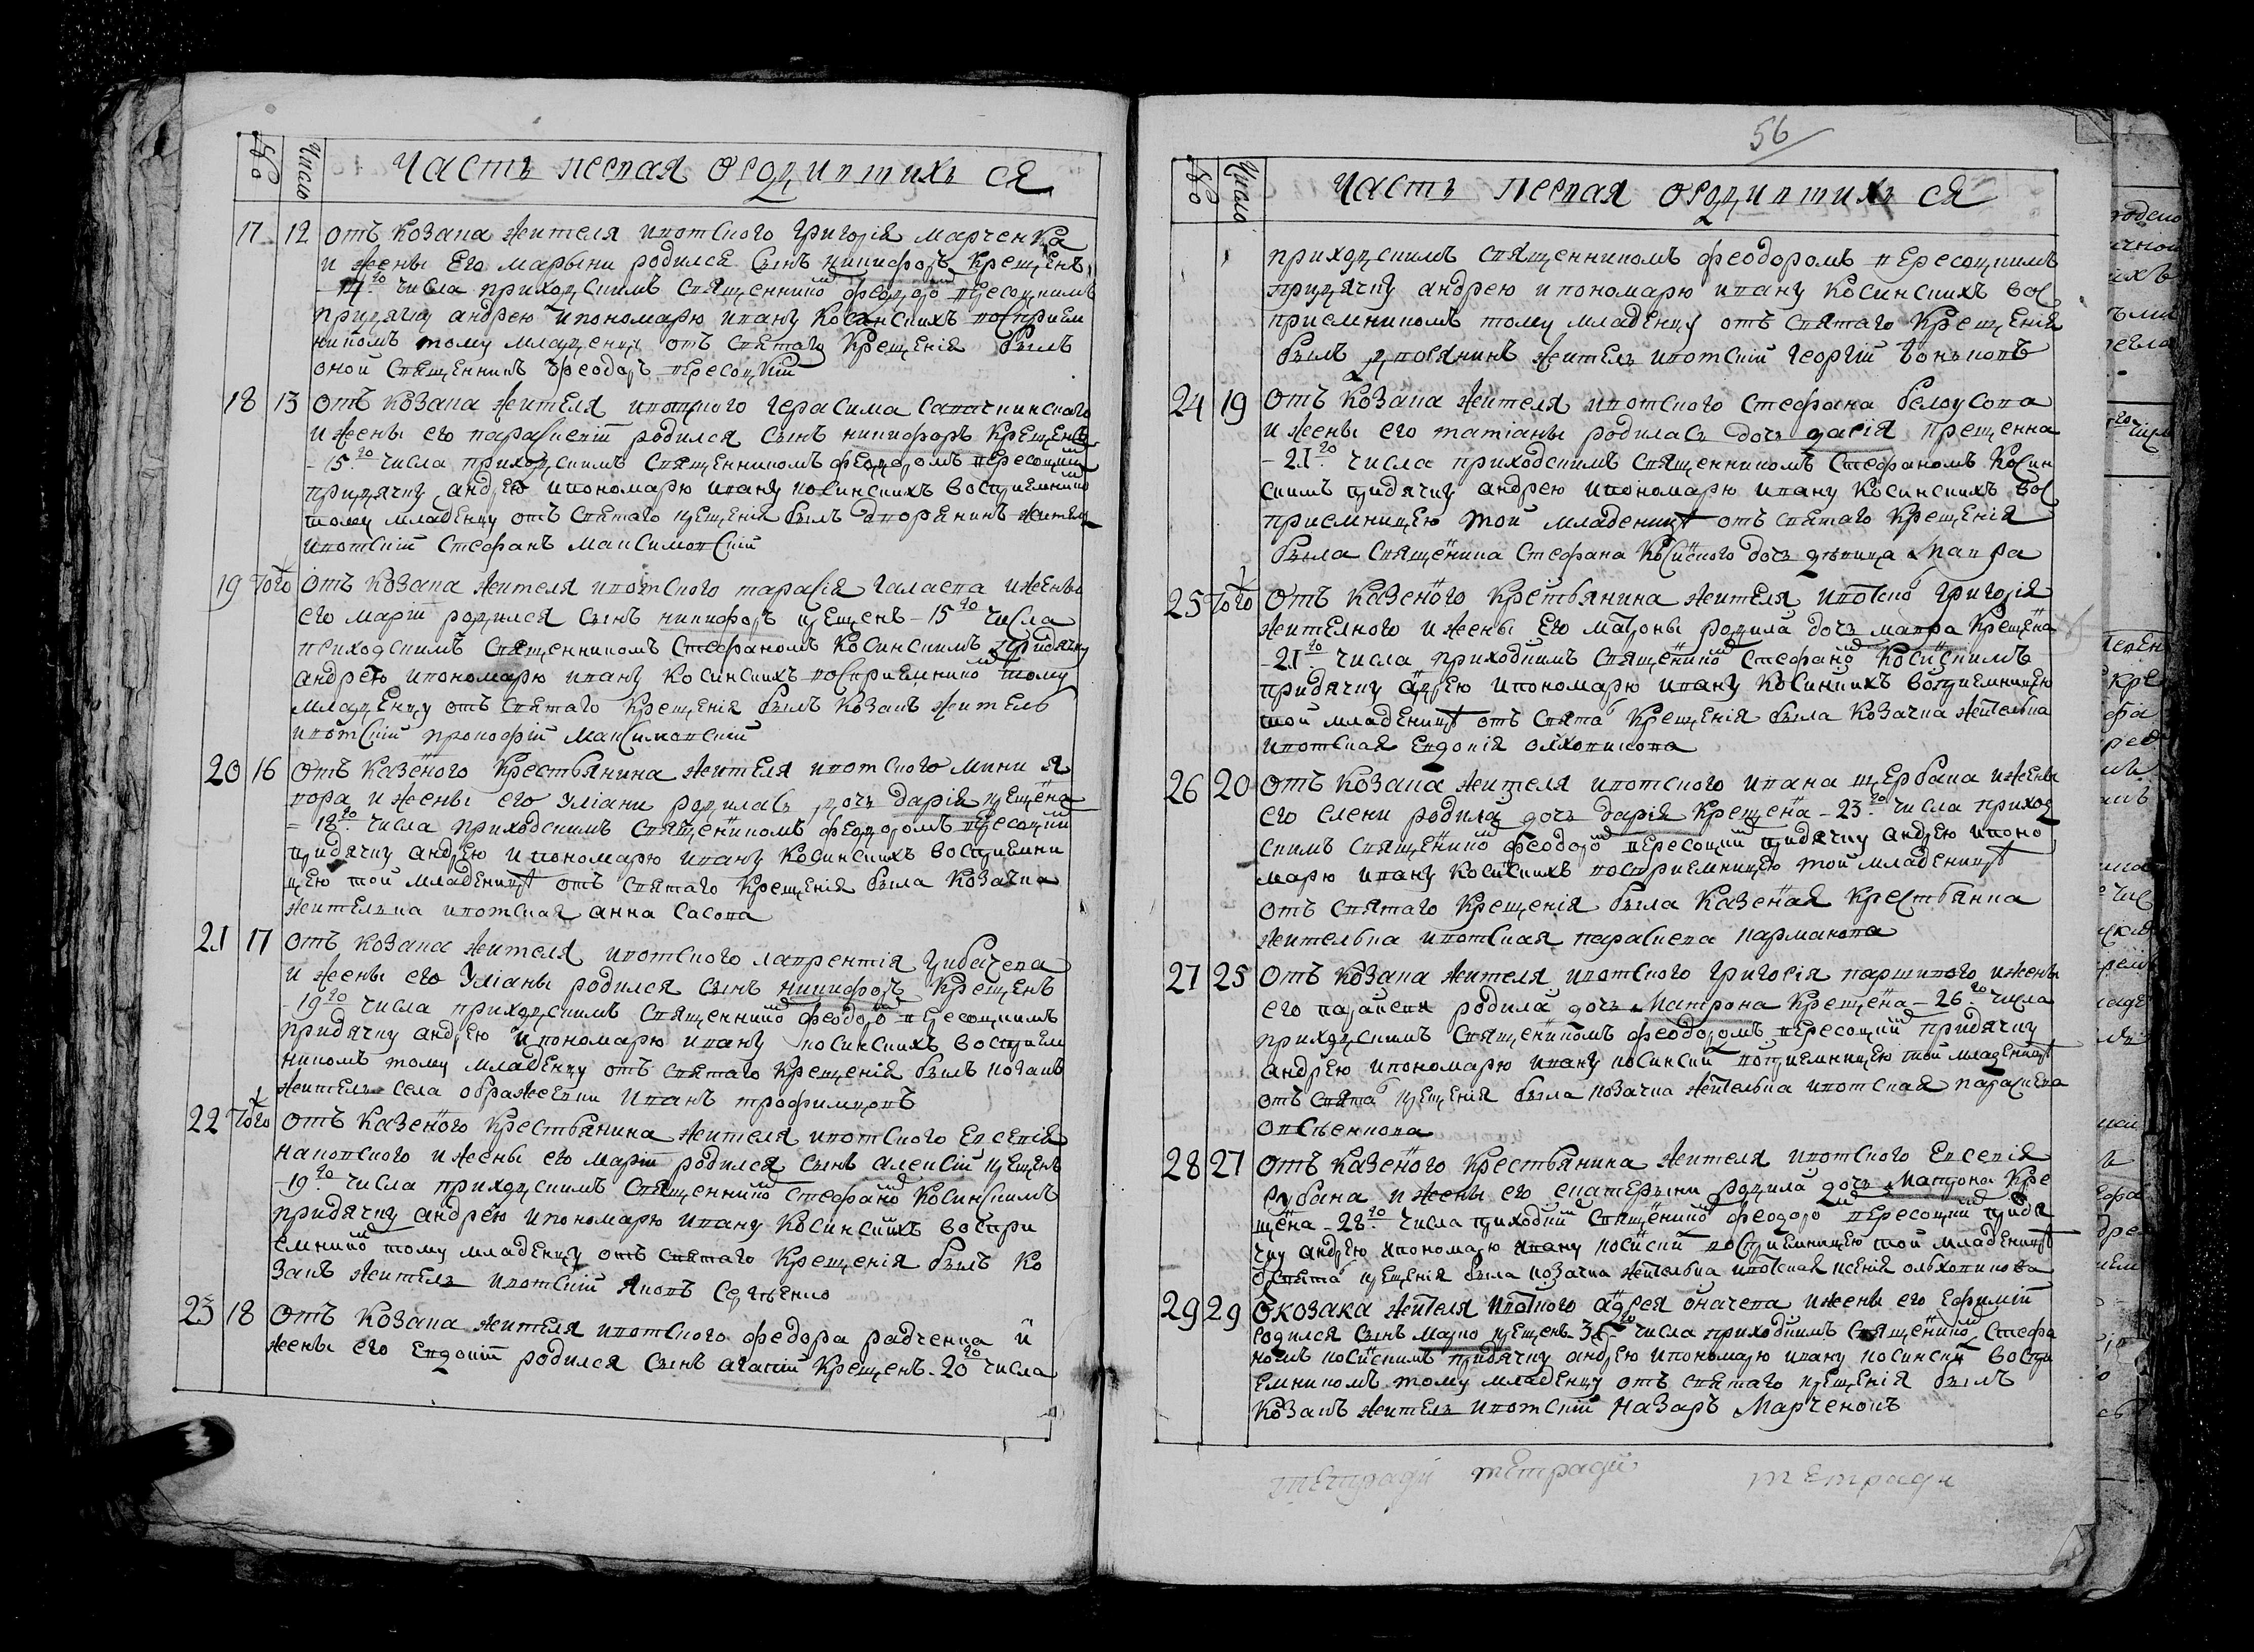 №
Число
Часть первая о родившихся
17 12 отъ козака жителя ивотского Григорія Марченка
и жены его Марыни родился сынъ никифоръ крещенъ
- 14го числа приходскимъ священнико феодоро пересоцкимъ
придячку андрею ипономарю ивану косинскихъ восприем
никомъ тому младенцу отъ святаго крещенія былъ
оной священникъ феодоръ пересоцкій
18 13 отъ козака жителя ивотского герасима
и жены его параскевіи родился сынъ никифоръ крещенъ
- 15го числа приходскимъ священникомъ феодоромъ пересоцким
придячку андрею ипономарю ивану косинскихъ восприемнико
тому младенцу отъ святаго крещенія былъ дворянинъ житель
ивотскій стефанъ максимовскій
19 того отъ козака жителя ивотского тарасія галаева и жены
его маріи родился сынъ никифоръ крещенъ - 15го числа
приходскимъ священникомъ стефаномъ косинскимъ придячку
андрею ипономарю ивану косинскихъ восприемнико тому
младенцу отъ святаго крещенія былъ козакъ житель
ивотскій прокофій максимовскій
20 16 отъ казеного крестьянина жителя ивотского мини я
вора и жены его уліани родиласъ дочъ дарія крещена
- 18го числа приходскимъ священикомъ феодоромъ пересоцким
придячку андрею ипономарю ивану косинскихъ восприемни
цею той младеницѣ отъ святаго крещенія была козачка
жителька ивотская анна сасова
21 17 отъ козака жителя ивотского лаврентія
и жены его уліаны родился сынъ никифоръ крещенъ
- 19го числа приходскимъ священнико феодоро пересоцкимъ
придячку андрею ипономарю ивану косинскихъ восприем
никомъ тому младенцу отъ святаго крещенія былъ козакъ
житель села ображеевки иванъ трофимцовъ
22 того отъ казеного крестьянина жителя ивотского евсевія
наковского и жены его маріи родился сынъ алексій крещенъ
- 19го числа приходскимъ священнико стефано косинскимъ
придячку андрею ипономарю ивану косинскихъ воспри
емнико тому младенцу отъ святаго крещенія былъ ко
закъ житель ивотскій яковъ сергѣенко
23 18 отъ козака жителя ивотского федора радченка и
жены его евдокіи родился сынъ агапій крещенъ - 20го числа
56
№
Число
Часть первая о родившихся
приходскимъ священникомъ феодоромъ пересоцкимъ
придячку андрею ипономарю ивану косинскихъ вос
приемникомъ тому младенцу отъ святаго крещенія
былъ дворянинъ житель ивотскій георгій
24 19 отъ козака жителя ивотского стефана белоусова
и жены его татіаны родиласъ дочъ дарія крещенна
- 21го числа приходскимъ священникомъ стефаномъ косин
скимъ придячку андрею ипономарю ивану косинскихъ вос
приемницею той младеницѣ отъ святаго крещенія
была священика стефана косиского дочъ дѣвица мавра
25 того отъ казеного крестьянина жителя ивотско григорія
жителного и жены его матроны родила дочъ мавра крещена
- 21го числа приходскимъ священико стефано косискимъ
придячку адрею ипономарю ивану косинскихъ восприемницею
той младеницѣ отъ свята крещенія была козачка жителька
ивотская евдокія олховикова
26 20 отъ козака жителя ивотского ивана щербака и жены
его елени родила дочъ дарія крещена - 23го числа приход
скимъ священико феодоро пересоцким придячку андрею ипоно
марю ивану косискихъ восприемницею той младеницѣ
отъ святаго крещенія была казеная крестьянка
жителька ивотская параскева
27 25 отъ козака жителя ивотского григорія паршикого и жены
его параскеви родила дочъ матрона крещена - 26го числа
приходскимъ священикомъ феодоромъ пересоцким придячку
андрею ипономарю ивану косински восприемницею той младеницѣ
отъ свята крещенія была козачка жителька ивотская параскева
овсѣенкова
28 27 отъ казеного крестьянина жителя ивотского евсевія
рубана и жены его екатерыни родила дочъ матрона кре
щена - 28го числа приходски священико феодоро пересоцки придя
чку андрею ипономарю ивану косиски восприемницею той младеницѣ
о свята крещенія была козачка жителька ивотская ксенія ольховикова
29 29 о козака жителя ивотного адрея и жены его ефиміи
родился сынъ марко крещенъ числа приходскимъ священико стефа
номъ косискимъ придячку андрею ипономарю ивану косински воспри
емникомъ тому младенцу отъ святаго крещенія былъ
козакъ житель ивотскій назаръ марченокъ
тетради тетради тетради